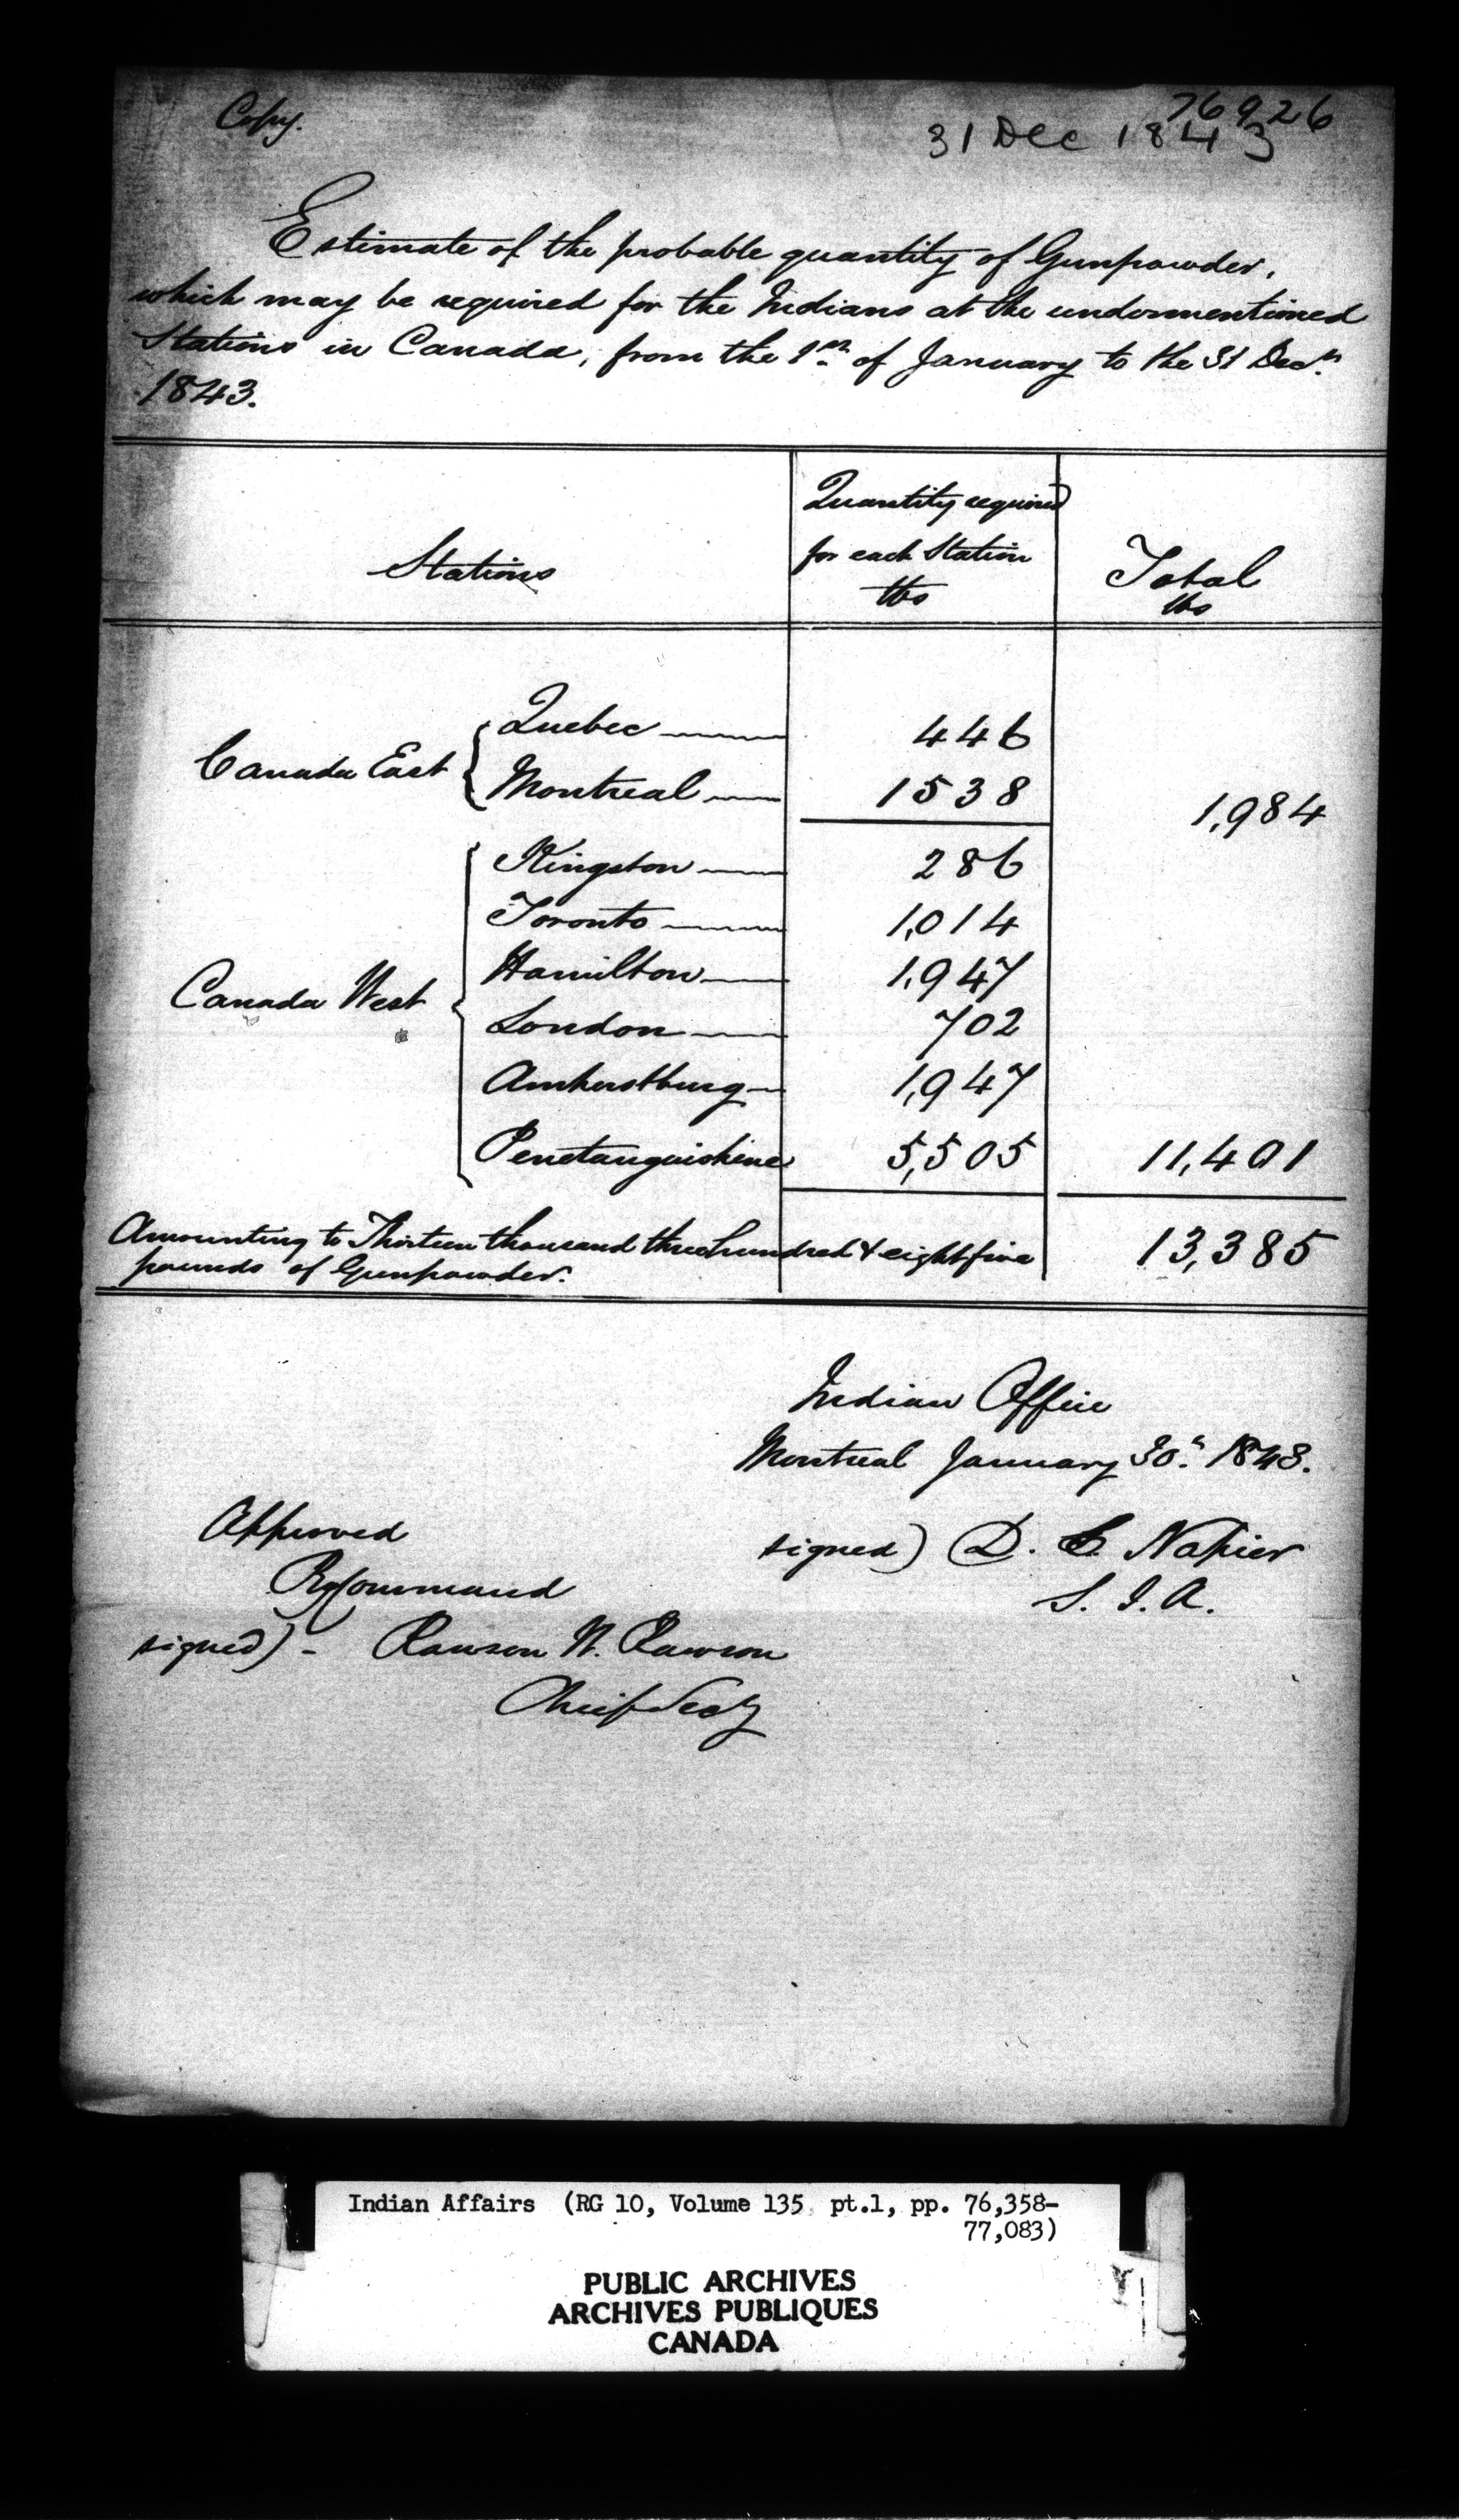 Copy.
76926
31 Dec 1843
Estimate of the probable quantity of Gunpowder,
which may be required for the Indians at the undermentioned
Stations in Canada, from the 1st of January to the 31 Decr
1843.
Stations
Quantity required
for each Station
lbs
Total
lbs
Canada East
Quebec 446
Montreal 1538
1,984
Kingston 286
Toronto 1,014
Hamilton 1,947
Canada West
London 702
Amherstburg 1,947
Penetanguishene 5,505 11,401
Amounting to Thirteen thousand three hundred & eightfive 13,385
pounds of Gunpowder.
Indian Office
Montreal January 30th 1843.
Approved
signed) D. C. Napier
Recommand
S. I. A.
signed) - Rawson W. Rawson
Cheif Secy
Indian Affairs (RG 10, Volume 135 pt.1, pp. 76,358-
77,083)
PUBLIC ARCHIVES
ARCHIVES PUBLIQUES
CANADA